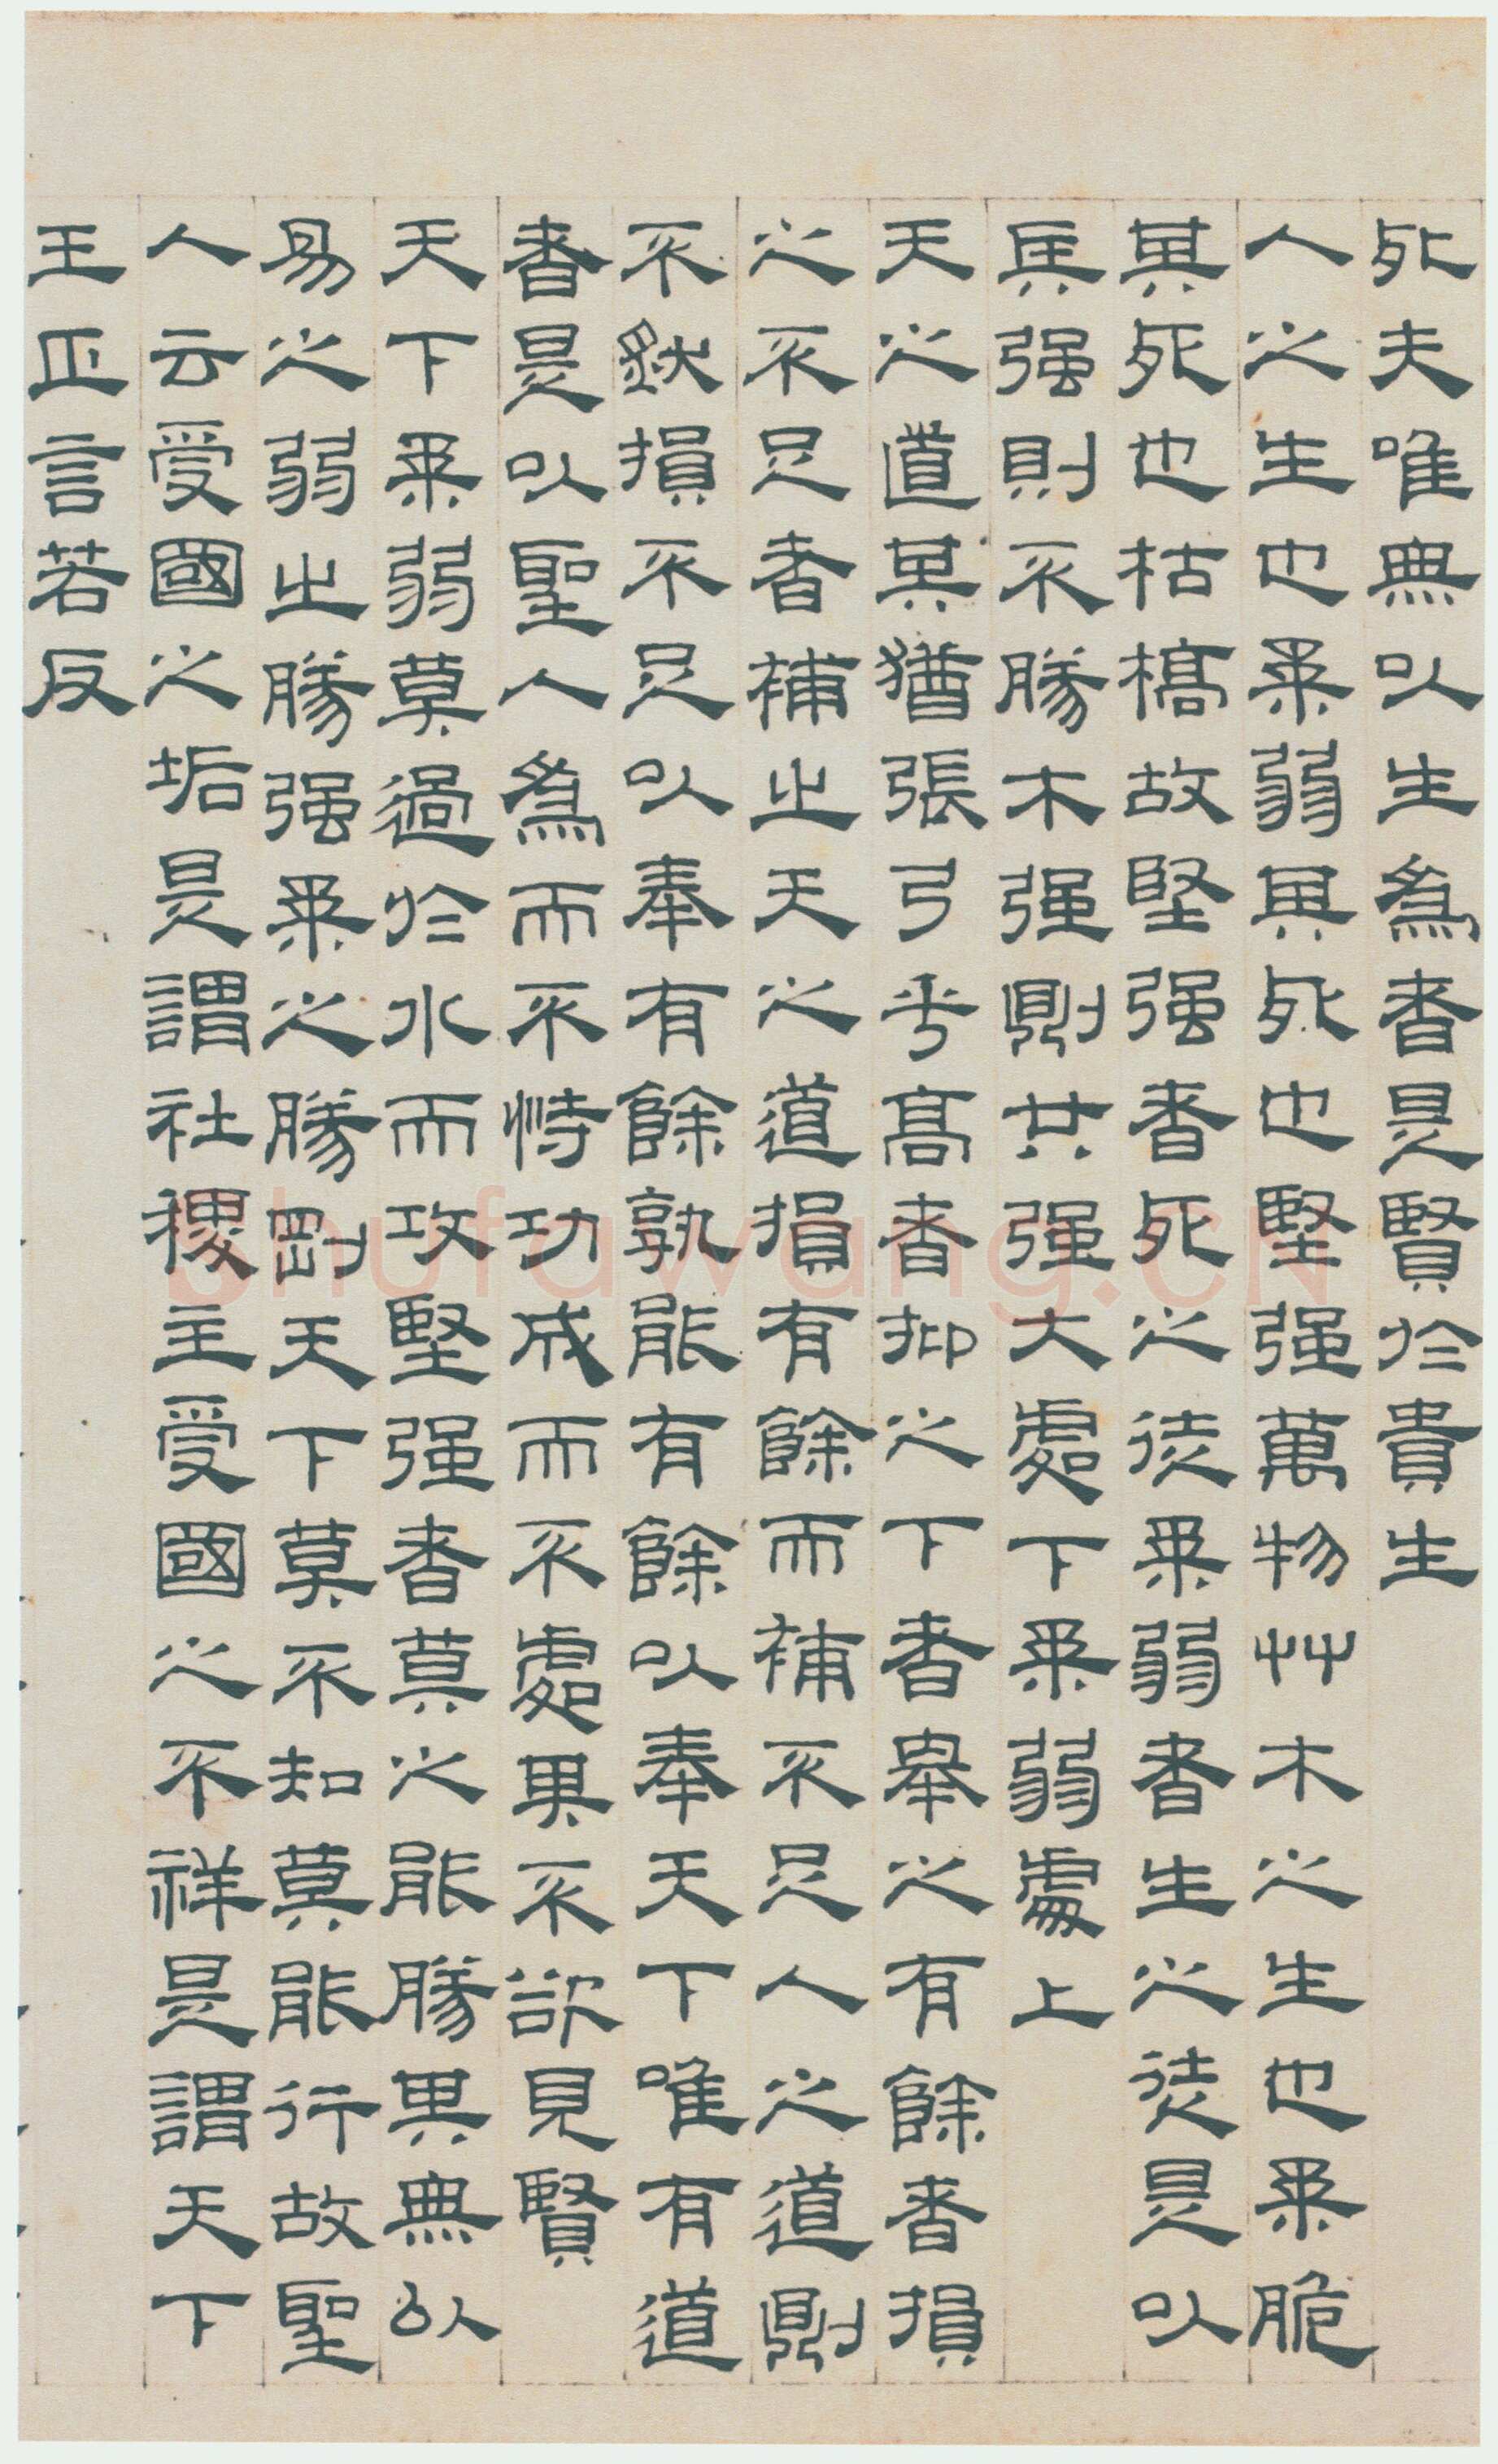 死夫唯無以生爲者是賢於貴生
人之生也柔弱其死也堅强萬物艸木之生也柔脆
其死也枯槁故堅强者死之徒柔弱者生之徒是以
兵强則不勝木强則共强大處下柔弱處上
天之道其猶張弓乎高者抑之下者舉之有餘者損
之不足者補之天之道損有餘而補不足人之道則
不然損不足以奉有餘孰能有餘以奉天下唯有道
者是以聖人爲而不恃功成而不處其不欲見賢
天下柔弱莫過於水而攻堅强者莫之能勝其無以
易之弱之勝强柔之勝剛天下莫不知莫能行故聖
人云受國之垢是謂社稷主受國之不祥是謂天下
王正言若反
shufawang.CN